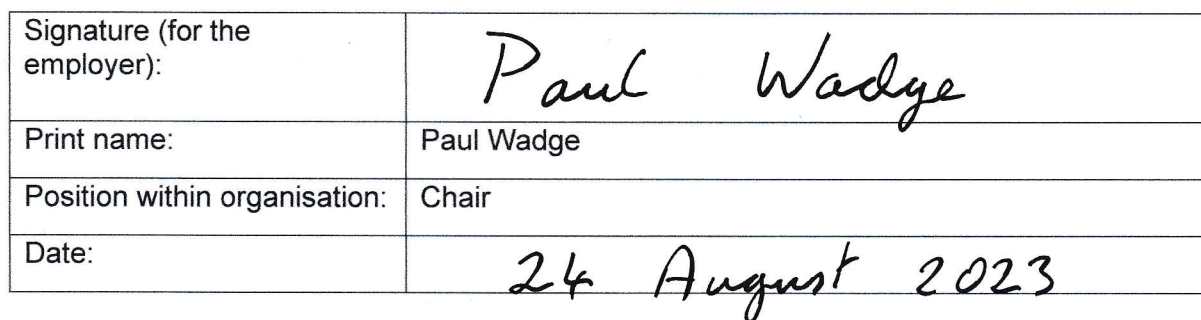 Signature (for the
employer):
Paul Wadge
Print name:
Paul Wadge
Position within organisation:
Chair
Date:
24 August 2023